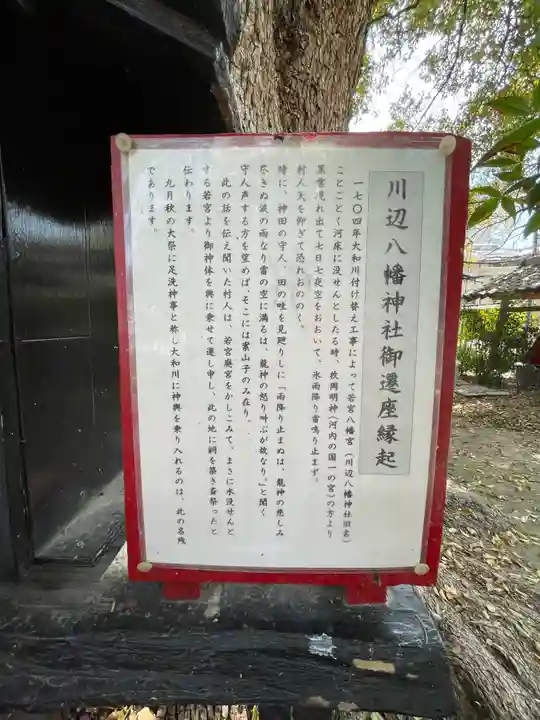 川辺八幡神社御遷座縁起
一七〇四年大和川付け替え工事によって若宮八幡宮(川辺八幡神社旧名)
ことごとく河床に没せんとしたる時、枚岡明神(河内の国一の宮)の方より
黒雲湧れ出て七日七夜空をおおいて、氷雨降り雷鳴り止まず。
村人天を仰ぎて恐れおののく。
時に、神田の守人、田の畦を見廻りしに「雨降り止まぬは、龍神の悲しみ
尽きぬ涙の雨なり雷の空に満るは、龍神の怒り叫ぶが故なり。」と聞く
守人声する方を望めば、そこには案山子のみ在り。
此の話を伝え聞いた村人は、若宮廃宮をかしこみて、まさに水没せんと
する若宮より御神体を輿に乗せて遷し申し、此の地に祠を築き斎祭ったと
伝わります。
九月秋の大祭に足洗神事と称し大和川に神輿を乗り入れるのは、此の名残
であります。